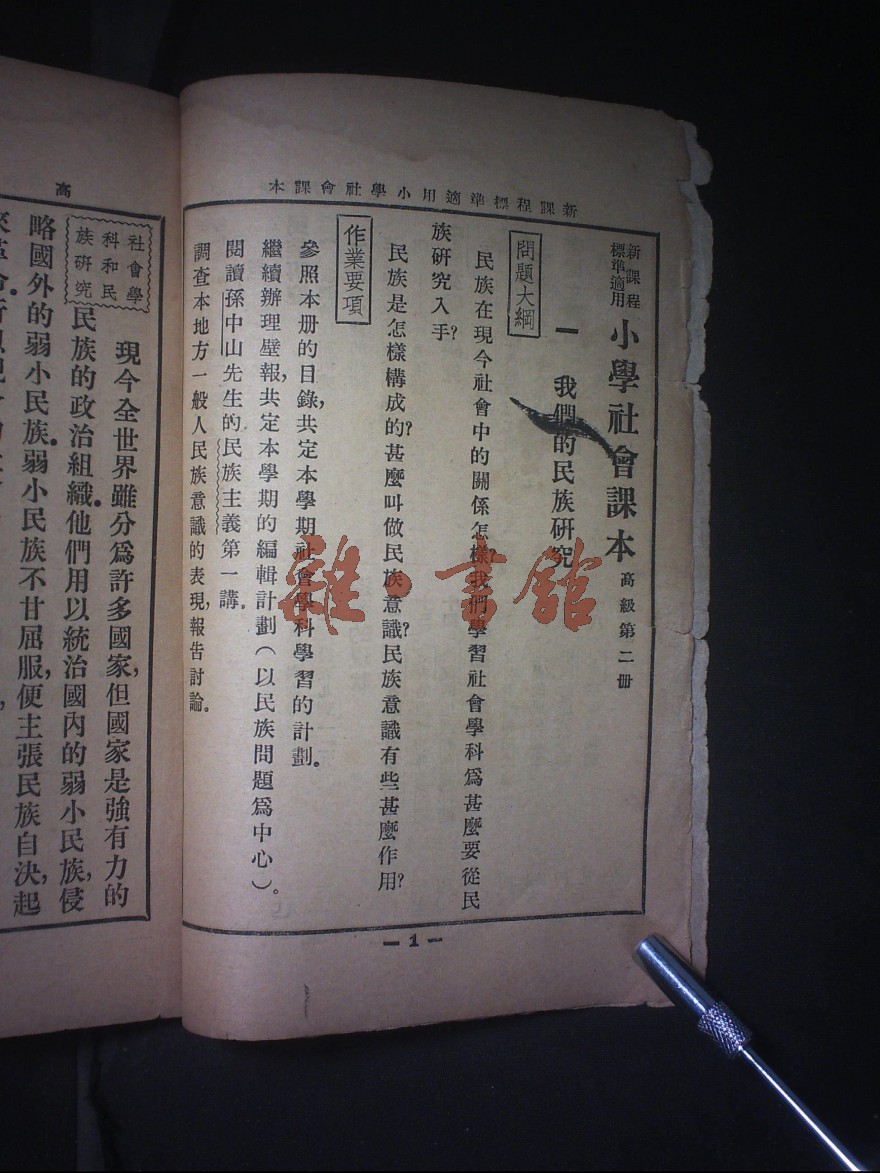 新課程標準適用小學社會課本
新課程
標準適用
小學社會課本 高級第二册
一 我們的民族硏究
問題大綱
民族在現今社會中的關係怎樣?我們學習社會學科爲甚麼要從民
族硏究入手?
民族是怎樣構成的?甚麼叫做民族意識?民族意識有些甚麼作用?
作業要項
參照本册的目錄,共定本學期社會學科學習的計劃。
繼續辦理壁報,共定本學期的編輯計劃(以民族問題爲中心)。
閱讀孫中山先生的民族主義第一講。
調查本地方一般人民族意識的表現,報告討論。
— 1 —
雜·書館
高
社會學
科和民
族硏究
現今全世界雖分爲許多國家,但國家是強有力的
民族的政治組織。他們用以統治國內的弱小民族,侵
略國外的弱小民族。弱小民族不甘屈服,便主張民族自決,起